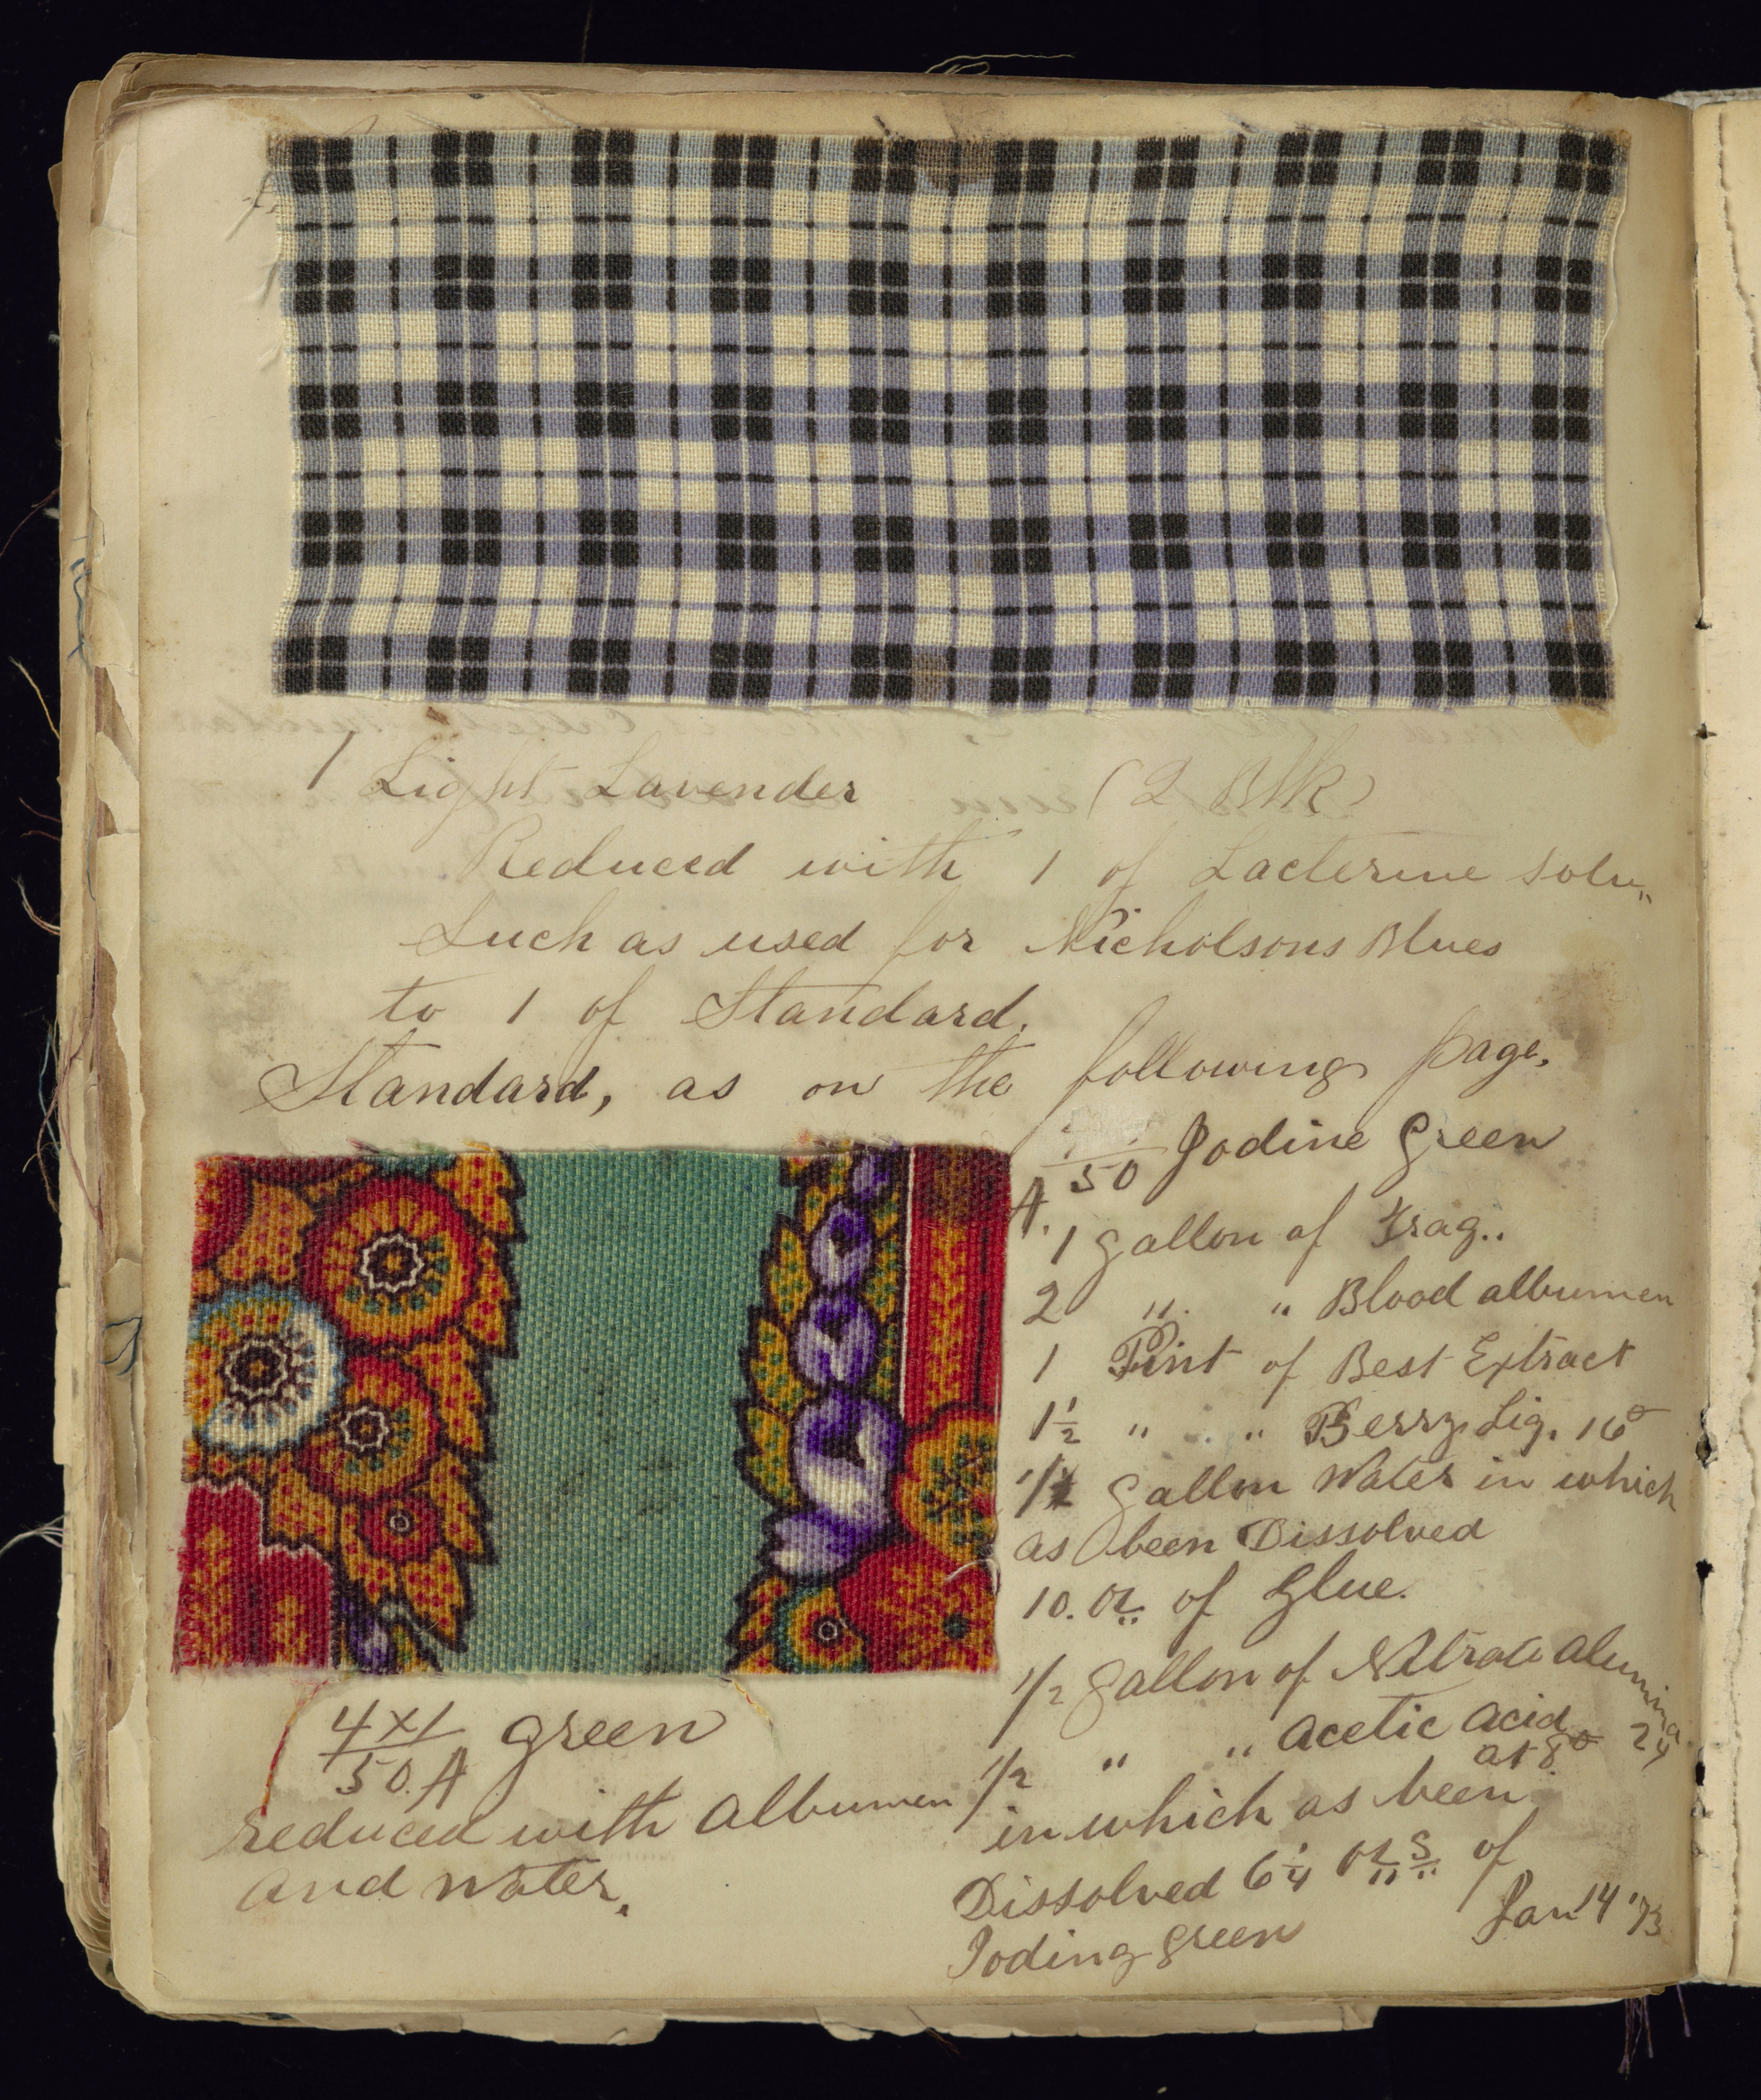 1 Light Lavender (2 Blk)
Reduced with 1 of Lacterine Solu,,
Such as used for Nicholsons Blues
to 1 of Standard.
Standard, as on the following page.
50 Iodine Green
A.
1 gallon of Trag..
2 " " Blood albumen
1 Pint of Best Extract
1 1/2 " " Berry Liq. 16°
gallon Water in which
as been Dissolved
10. oz. of Glue.
1/2 gallon of Nitrate alumina 24
1/2 " " acetic acid at 8°
in which as been
Dissolved 6 1/4 ozs of
Ioding green
Jan 14 '73
4x1/50.A green
reduced with albumen
and water.